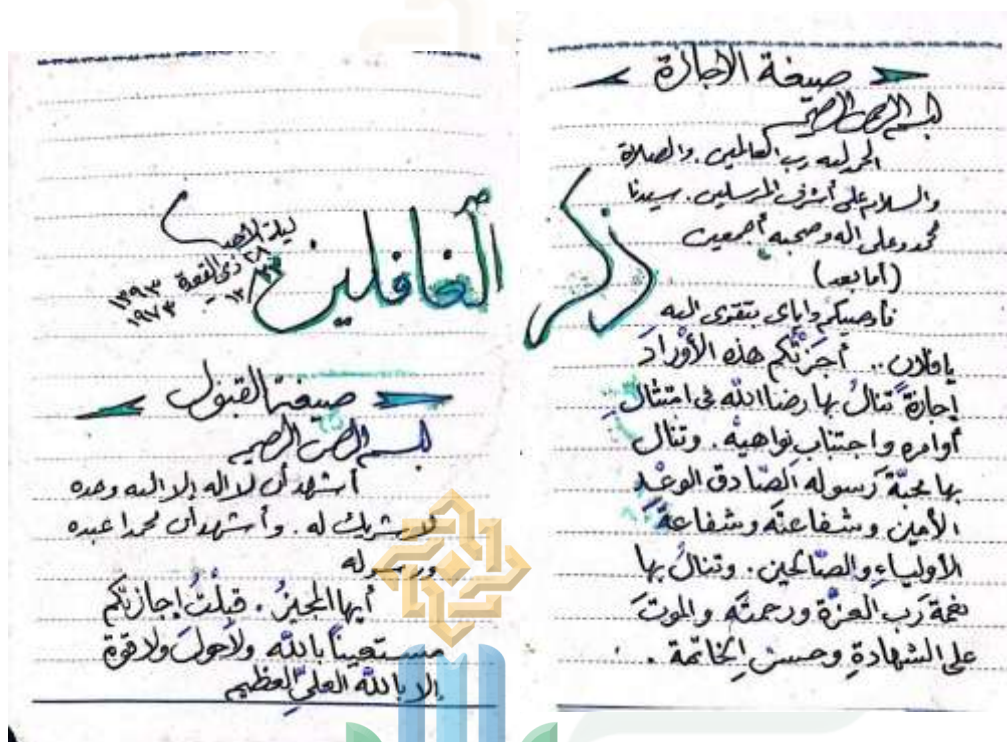 صيغة الاجازة
بسم الله الرحمن الرحيم
الحمد لله رب العالمين. والصلاة
والسلام على أشرف المرسلين. سيدنا
محمد وعلى اله وصحبه أجمعين
(أما بعد)
فأوصيكم واياى بتقوى الله
يافلان.. أجزتكم هذه الأوراد
إجازة تنال بها رضا الله فى امتثال
أوامره واجتناب نواهيه. وتنال
بها محبة رسوله الصادق الوعد
الأمين وشفاعته وشفاعة
الأولياء والصالحين. وتنال بها
نعمة رب العزة ورحمته والموت
على الشهادة وحسن الخاتمة.
ذكر الغافلين
ليلة
٢٨ ذى القعدة ١٣٩٣
٢٢/١٢ ١٩٧٣
صيغة القبول
بسم الله الرحمن الرحيم
أشهد أن لا اله إلا الله وحده
لا شريك له. وأشهد أن محمدا عبده
ورسوله
أيها المجيز. قبلت إجازتكم
مستعينا بالله ولا حول ولا قوة
إلا بالله العلي العظيم